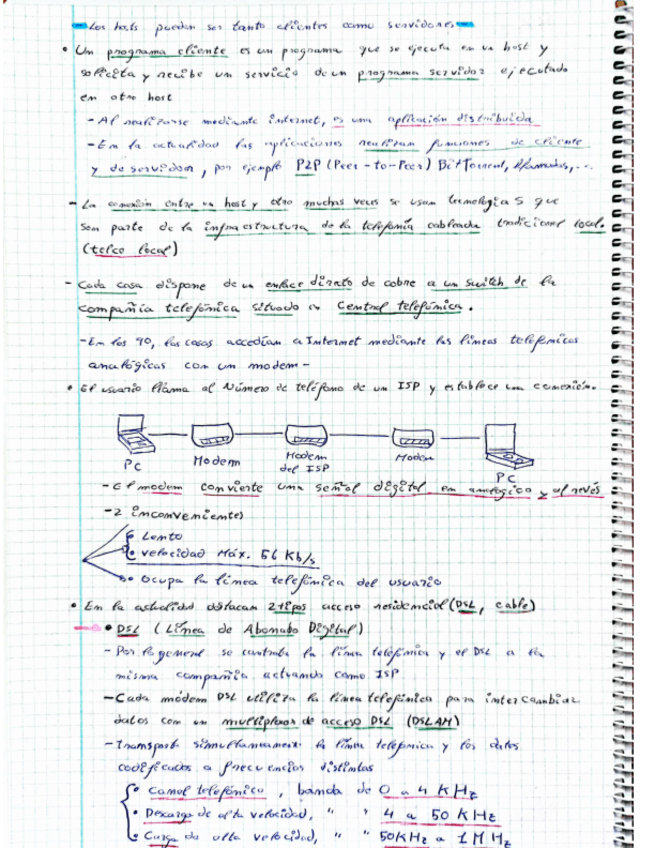 - Los hosts pueden ser tanto clientes como servidores -
• Un programa cliente es un programa que se ejecuta en un host y
solicita y recibe un servicio de un programa servidor ejecutado
en otro host
- Al realizarse mediante internet, es una aplicación distribuida
- En la actualidad las aplicaciones realizan funciones de cliente
y de servidor, por ejemplo P2P (Peer-to-Peer) BitTorrent, llamadas,...
- La conexión entre un host y otro muchas veces se usan tecnologías que
son parte de la infraestructura de la telefonía cableada tradicional local.
(telco local)
- Cada casa dispone de un enlace directo de cobre a un switch de la
compañía telefónica situado en Central telefónica.
- En los 90, las casas accedían a Internet mediante las líneas telefónicas
analógicas con un modem -
• El usuario llama al Número de teléfono de un ISP y establece una conexión.
PC Modem Modem del ISP Modem PC
- El modem convierte una señal digital en analógico y al revés
- 2 inconvenientes
• Lento
• velocidad Máx. 56 Kb/s
• Ocupa la línea telefónica del usuario
• En la actualidad destacan 2 tipos acceso residencial (DSL, cable)
• DSL (Línea de Abonado Digital)
- Por lo general se contrata la línea telefónica y el DSL a la
misma compañía actuando como ISP
- Cada módem DSL utiliza la línea telefónica para intercambiar
datos con un multiplexor de acceso DSL (DSLAM)
- Transporta simultáneamente la línea telefónica y los datos
codificados a frecuencias distintas
• Canal telefónico, banda de 0 a 4 KHz
• Descarga de alta velocidad, " " 4 a 50 KHz
• Carga de alta velocidad, " " 50KHz a 1 MHz